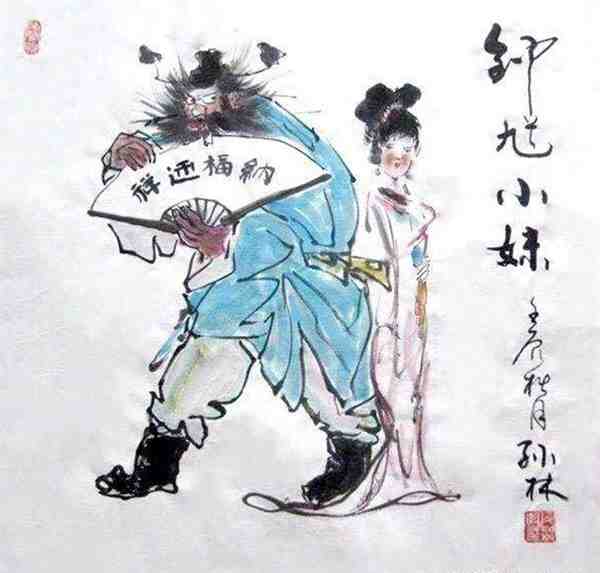 钟馗小妹
壬辰秋月 孙林
纳福迎祥